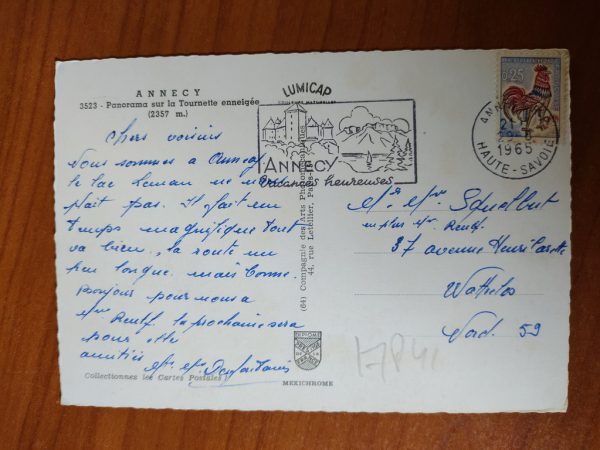 ANNECY
3523 - Panorama sur la Tournette enneigée
(2357 m.)
Chers voisins
Nous sommes a Annecy
le lac Leman ne nous
plait pas. Il fait un
temps magnifique tout
va bien, la route un
peu longue. mais bonne
Bonjour pour nous a
Mme la prochaine sera
pour elle
amitiés
Mr Mme
Collectionnez les Cartes Postales
LUMICAP
COULEURS NATURELLES
(64) Compagnie des Arts Photomécaniques
44, rue Letellier, Paris
MEXICHROME
ANNECY
Vacances heureuses
0,25
ANNECY
1965
HAUTE-SAVOIE
Mr Mme
en plus Mme
37 avenue Henri
Wattrelos
Nord. 59